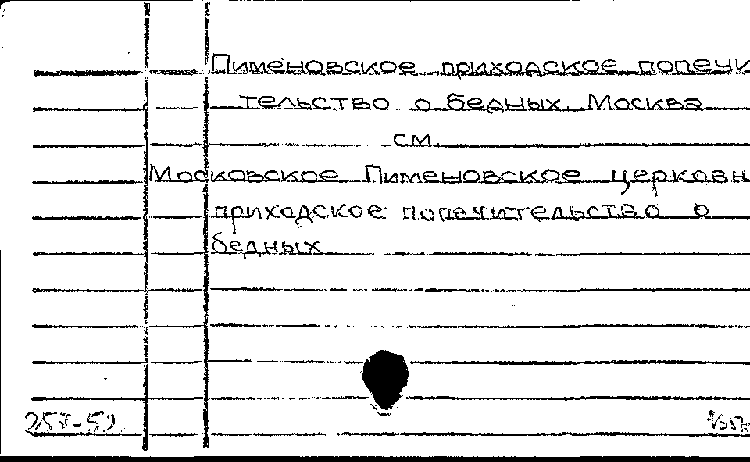 Пименовское приходское попечи
тельство о бедных. Москва
см.
Московское Пименовское церковн
приходское попечительство о
бедных